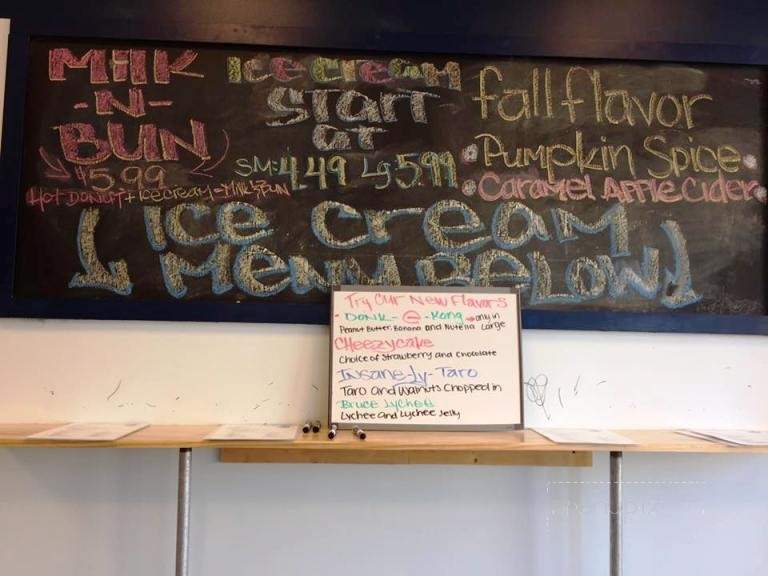 Milk
-N-
BUN
$5.99
HOT DONUT + ice cream = Milk N BUN
ice cream
START
at
SM: 4.49 Lg 5.99
fall flavor
• Pumpkin Spice
• Caramel Apple Cider
ice cream
Menu Below
Try Our New Flavors
• Donk-e-Kong → only in Large
Peanut Butter, Banana and Nutella
Cheezycake
Choice of Strawberry and Chocolate
Insane-ly-Taro
Taro and Walnuts Chopped in
Bruce Lychee
Lychee and Lychee Jelly